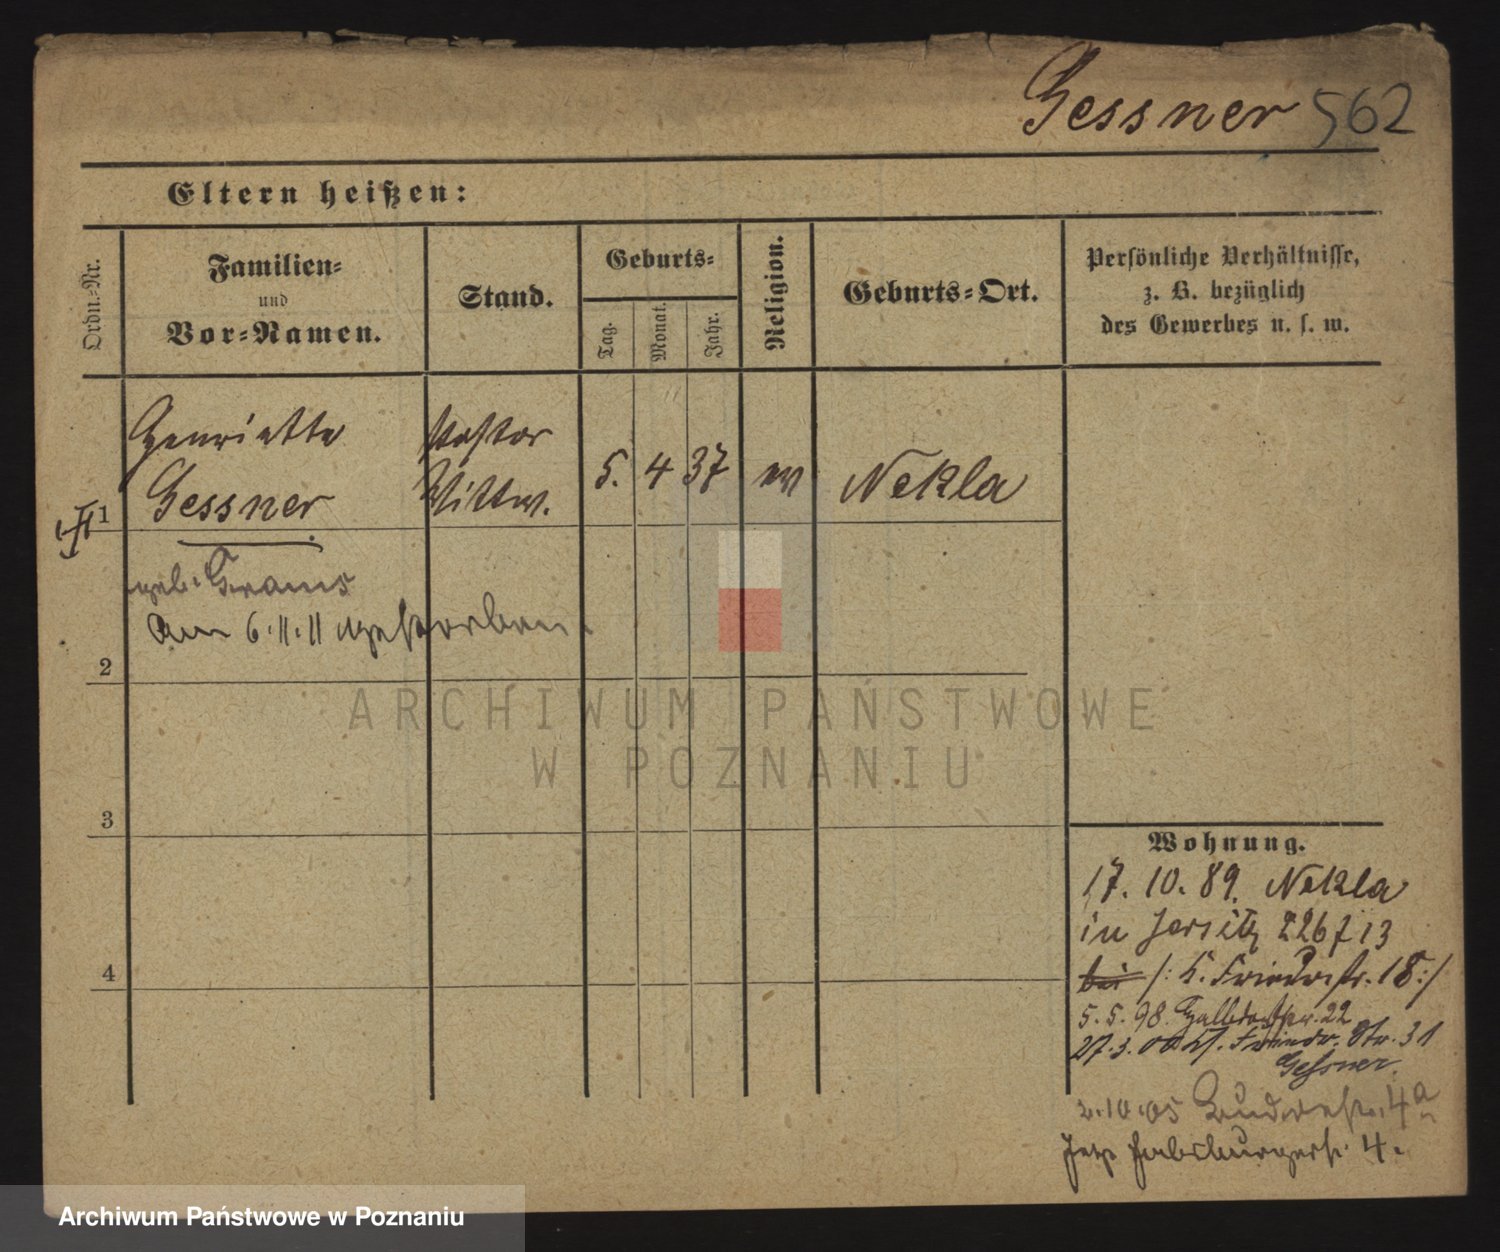 Gessner 562
Eltern heißen:
Ordn.-Nr.
Familien-
und
Vor-Namen.
Stand.
Geburts-
Tag.
Monat.
Jahr.
Religion.
Geburts-Ort.
Persönliche Verhältnisse,
z. B. bezüglich
des Gewerbes u. s. w.
Henriette
Gessner
Pastor
Wittw.
5. 4 37
ev
Nekla
1
geb. Grams
Am 6.11.11 gestorben.
2
3
4
Wohnung.
17. 10. 89. Nekla
in Jersitz 226 f 13
bei /: K. Friedrstr. 18 :/
5. 5. 98. Halbdorfstr. 22
27. 3. 00 Kl. Friedr. Str. 31
Gessner.
2.10.05 4a
Jetzt Habsburgerstr. 4.
ARCHIWUM PAŃSTWOWE
W POZNANIU
Archiwum Państwowe w Poznaniu